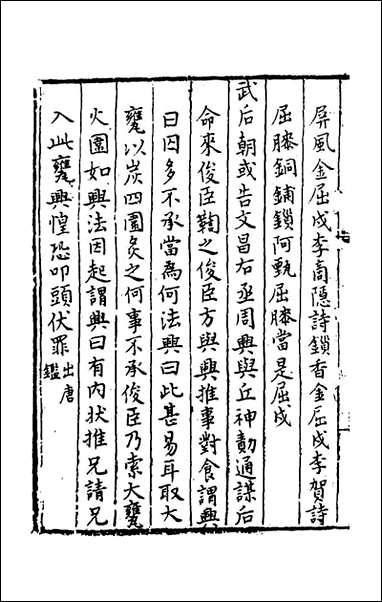 屏風金屈戍李商隱詩鎖香金屈戍李賀詩
屈膝銅鋪鎖阿甄屈膝當是屈戍
武后朝或告文昌右丞周興與丘神勣通謀后
命來俊臣鞫之俊臣方與興推事對食謂興
曰囚多不承當為何法興曰此甚易耳取大
甕以炭四圍炙之何事不承俊臣乃索大甕
火圍如興法因起謂興曰有內狀推兄請兄
入此甕興惶恐叩頭伏罪出唐鑑